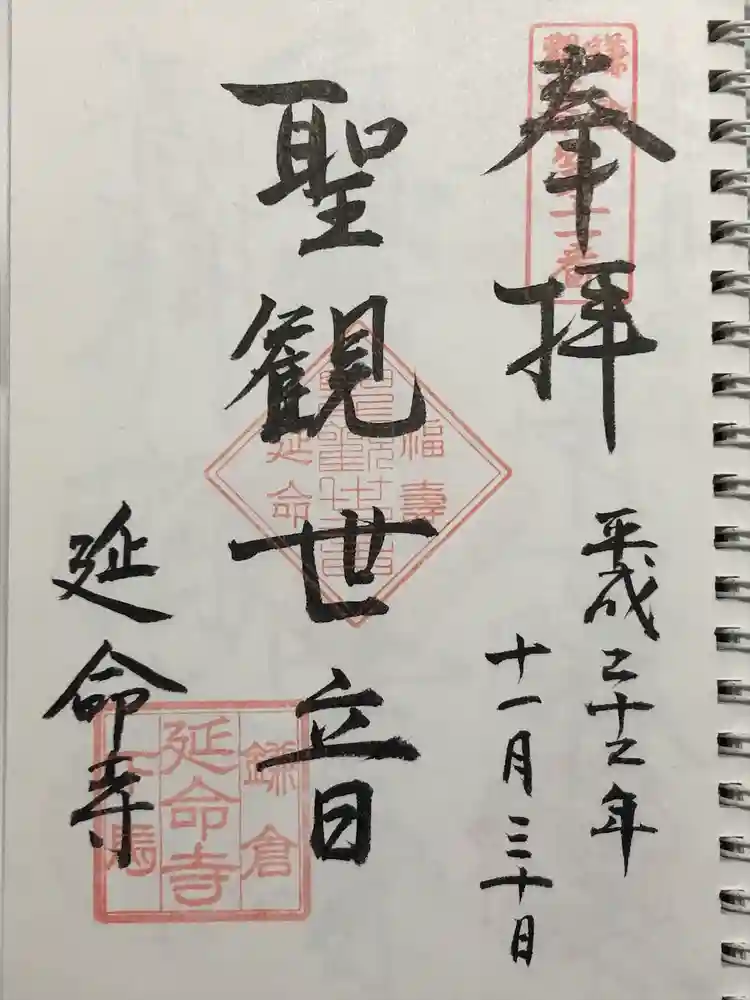 奉拝
平成二十二年
十一月三十日
聖観世音
福壽
延命
延命寺
鎌倉
延命寺